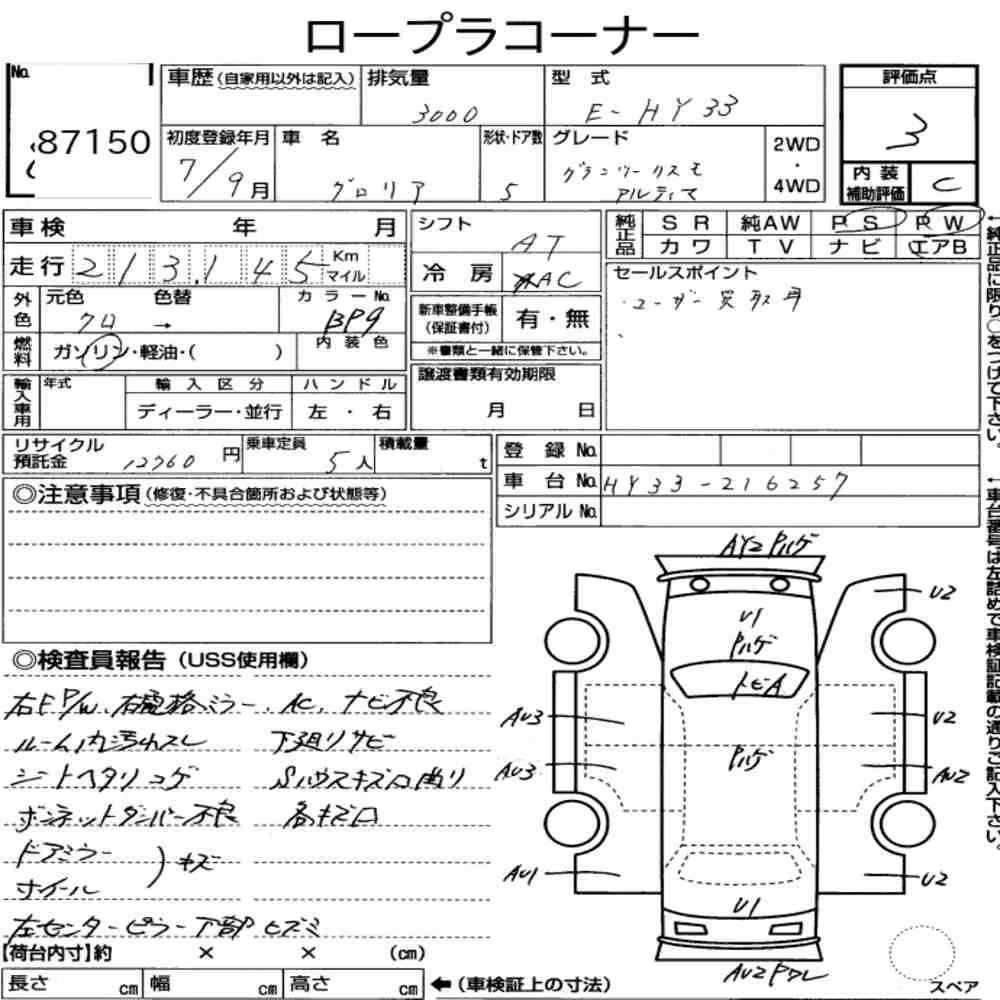 ロープラコーナー
No.
87150
車歴(自家用以外は記入)
排気量
3000
型式
E-HY33
評価点
3
初度登録年月
7/9月
車名
グロリア
形状・ドア数
5
グレード
グランツーリスモ
アルティマ
2WD
・
4WD
内装
補助評価
C
車検 年 月
走行 213,145 Km
マイル
シフト
AT
冷房
AC
純正品
SR 純AW PS PW
カワ TV ナビ エアB
外色
元色 色替
クロ →
カラーNo.
BP9
燃料
ガソリン・軽油・( )
内装色
新車整備手帳
(保証書付)
有・無
※書類と一緒に保管下さい。
セールスポイント
・ユーザー買取車
輸入車用
年式
輸入区分
ディーラー・並行
ハンドル
左・右
譲渡書類有効期限
月 日
リサイクル
預託金
12760 円
乗車定員
5人
積載量
t
登録No.
車台No. HY33-216257
シリアルNo.
◎注意事項(修復・不具合箇所および状態等)
◎検査員報告(USS使用欄)
右F P/W、右電格ミラー、AC、ナビ不良
ルーム内汚れスレ
下廻りサビ
シートヘタリコゲ
Sハウスキズ凹曲り
ボンネットダンパー不良
各キズ凹
ドアミラー
ホイール
)キズ
左センターピラー下部ヒズミ
AY2 Pハゲ
U2
U1
Pハゲ
トビA
AU3
U2
Pハゲ
AU3
AU2
AU1
U2
U1
AU2 Pワレ
スペア
【荷台内寸】約 × × (cm)
長さ cm 幅 cm 高さ cm ←(車検証上の寸法)
←純正品に限り○をつけて下さい。
←車台番号は左詰めで車検証記載の通りご記入下さい。